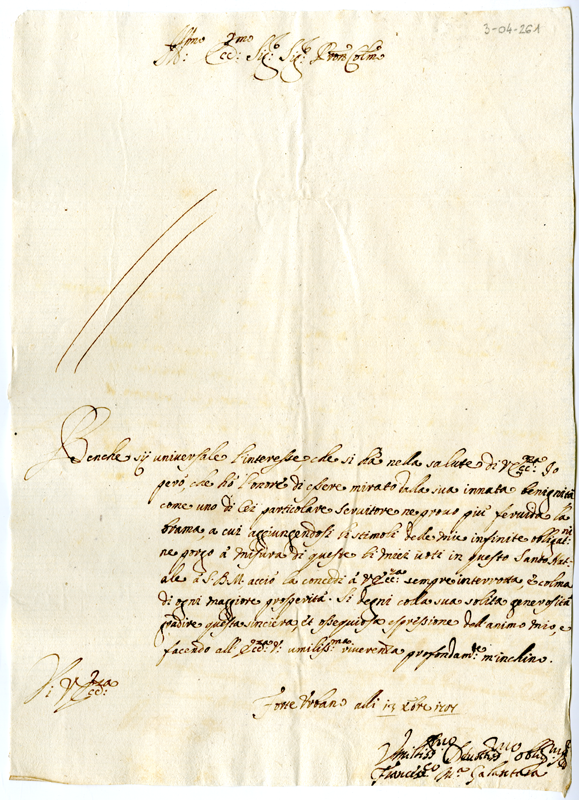 3-04-261
Ill.mo Ecc.mo Sig.r Sig.r Pron Colmo
Benche sij universale l'interesse, che si hà nella salute di V Ecc:za Io
però, che hò l'onore di essere mirato dalla sua innata benignità
come uno di Lei particolare Servitore ne provo più fervida la
brama, a cui aggiungendosi li stimoli delle mie infinite obligat.ni
ne porgo à misura di queste li miei voti in questo Santo Nat-
ale à S.B.M acciò la concedi à V Ecc:za sempre interrotta e colma
di ogni maggiore prosperità. Si degni colla sua solita generosità
gradire questa sincera, et ossequiosa espressione dell'animo mio, e
facendo all' Ecc:za V: umiliss.ma riverenza profondam.te m'inchino.
Di V Ecc:za
Forte Urbano adi 13 Xbre
Umiliss.mo Devotiss.mo
Frances.co M.a